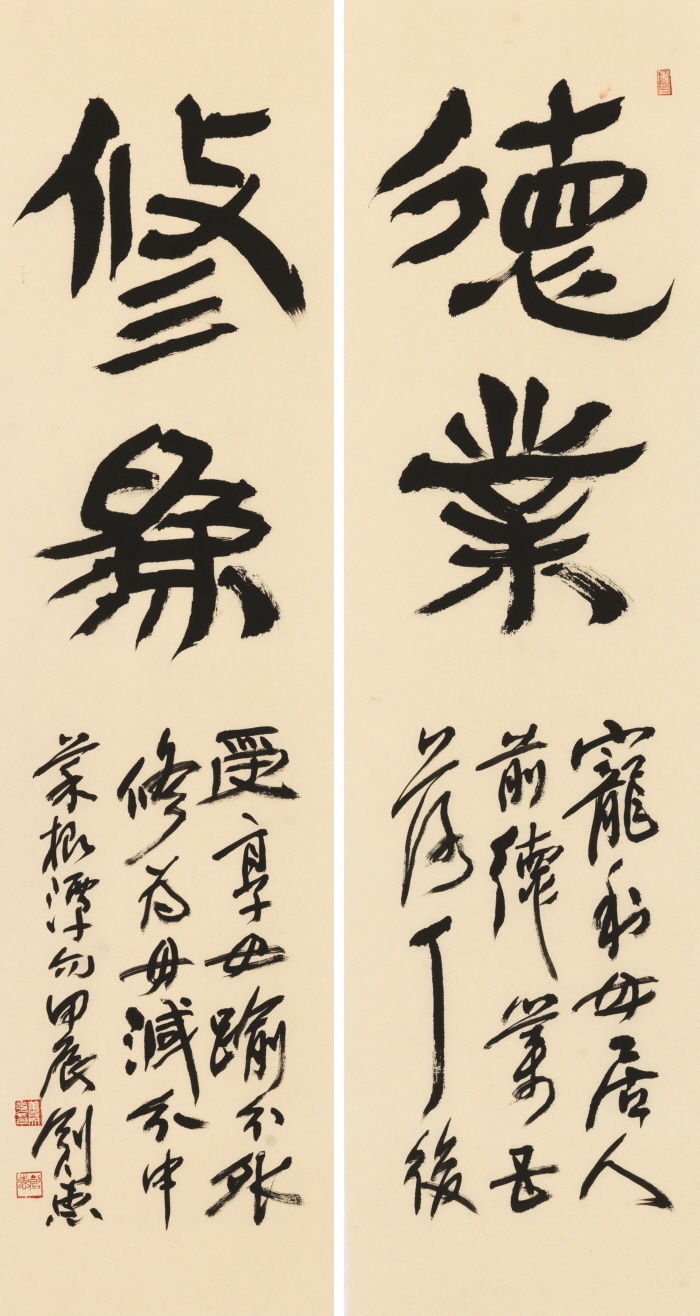 德業
寵利毋居人
前德業毋
落人後
修爲
受享毋踰分外
修为毋減分中
菜根潭句甲辰